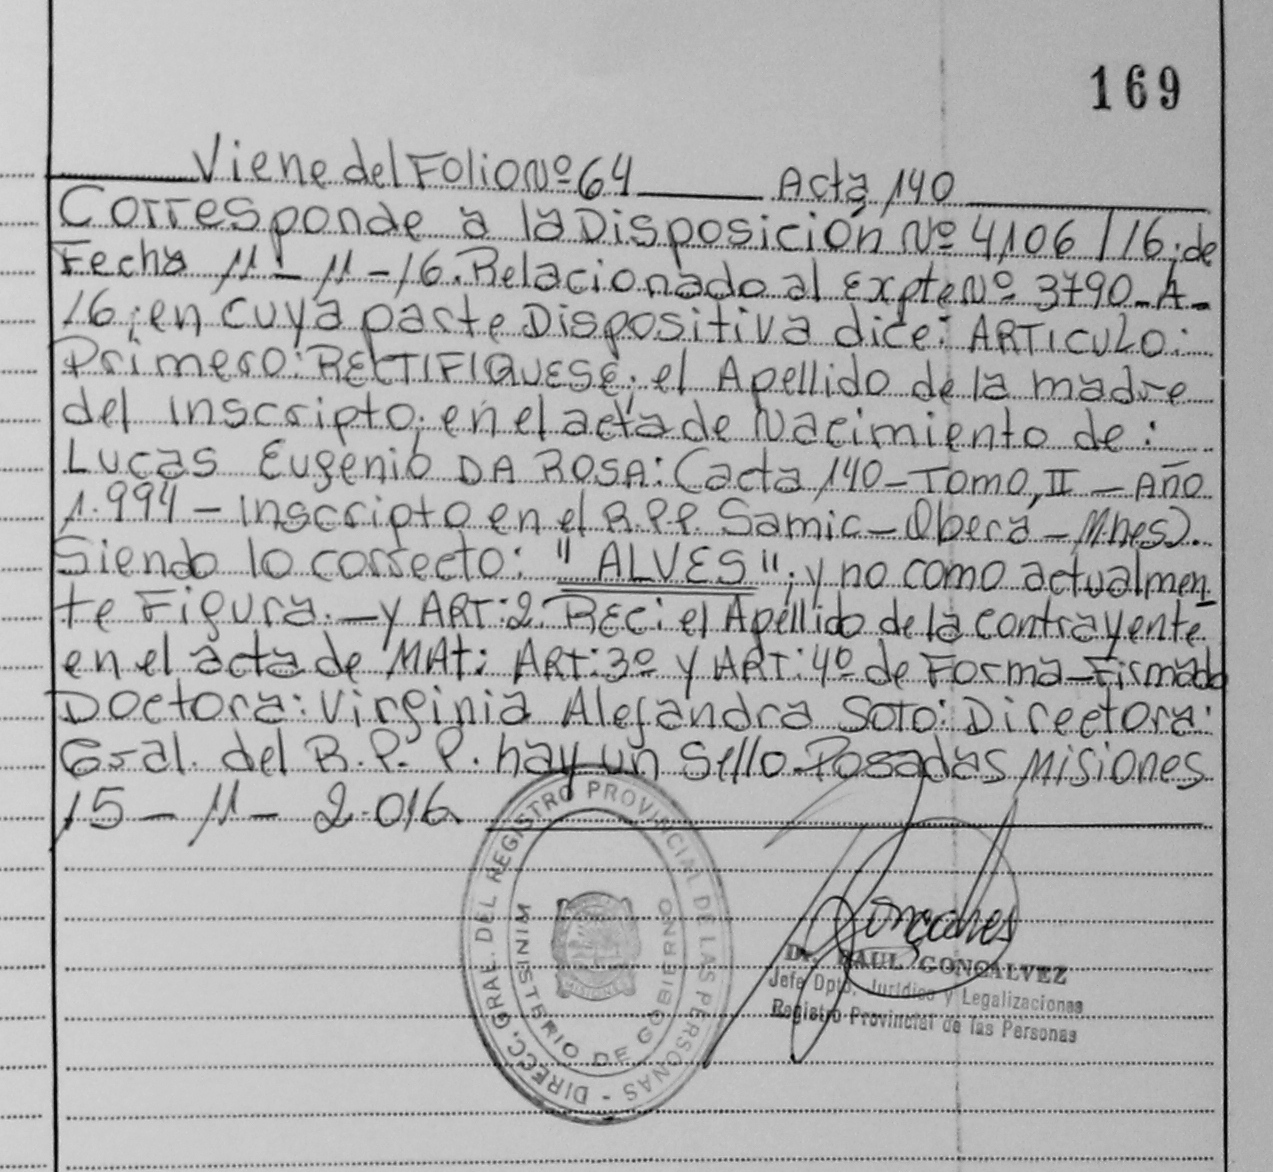 169
Viene del Folio Nº 64 Acta 140
Corresponde a la Disposición Nº 4106/16; de
Fecha 11-11-16. Relacionado al Expte Nº 3790-A-
16; en cuya parte Dispositiva dice: ARTICULO:
Primero: RECTIFIQUESE; el Apellido de la madre
del inscripto; en el acta de Nacimiento de:
Lucas Eugenio DA ROSA: (acta 140-Tomo, II - Año
1.994 - Inscripto en el R.P.P. Samic-Oberá-Mnes).
Siendo lo correcto: "ALVES"; y no como actualmen
te Figura. - y ART: 2. REC: el Apellido de la contrayente
en el acta de MAt: ART: 3º y ART: 4º de Forma-Firmado
Doctora: Virginia Alejandra SOTO: Directora:
Gral. del R.P.P. hay un Sello-Posadas Misiones
15-11-2.016
DIRECC. GRAL. DEL REGISTRO PROVINCIAL DE LAS PERSONAS -
MINISTERIO DE GOBIERNO
MISIONES
Dr. RAUL GONCALVEZ
Jefe Dpto. Jurídico y Legalizaciones
Registro Provincial de las Personas